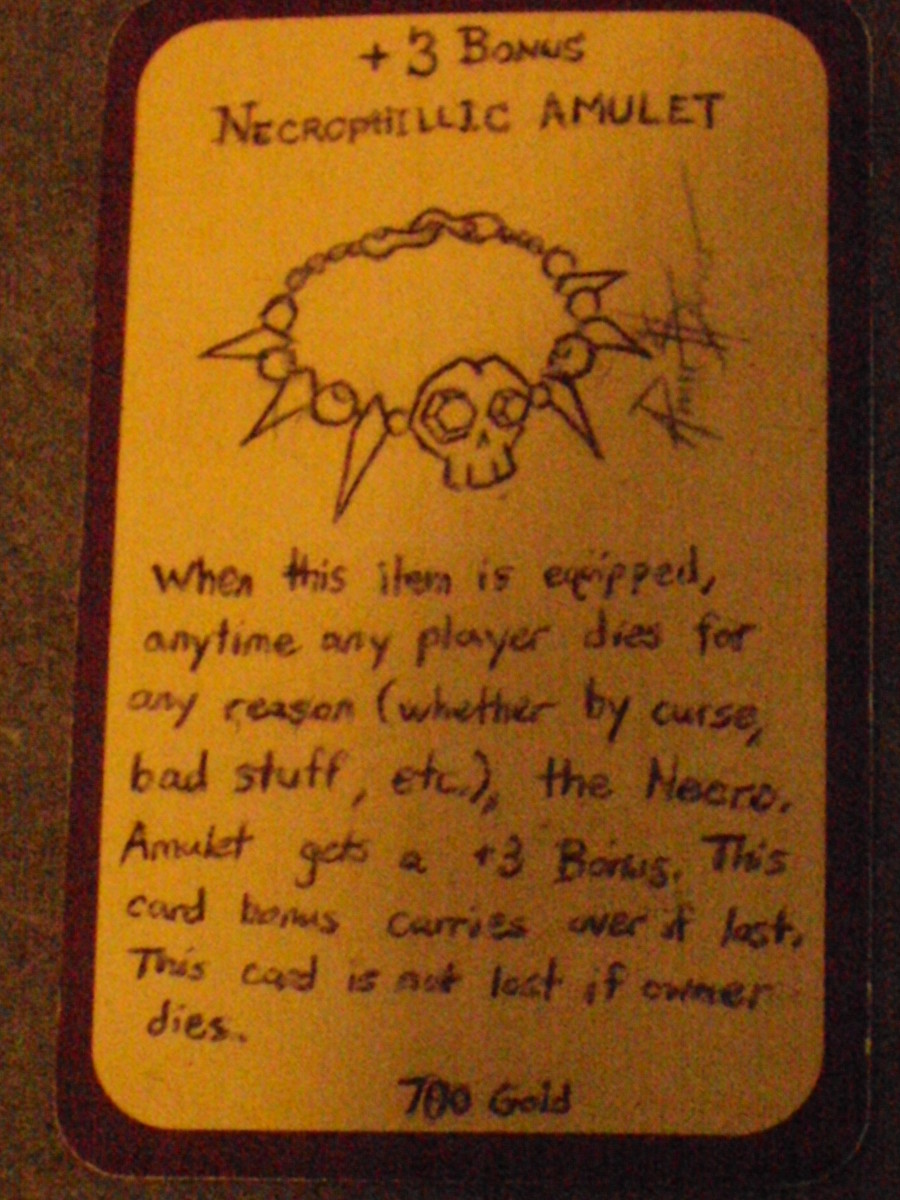 +3 Bonus
NECROPHILLIC AMULET
When this item is equipped,
anytime any player dies for
any reason (whether by curse,
bad stuff, etc.), the Necro.
Amulet gets a +3 Bonus. This
card bonus carries over if lost.
This card is not lost if owner
dies.
700 Gold